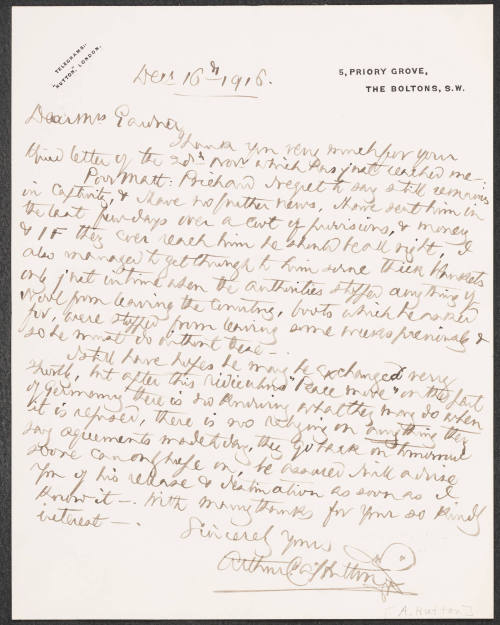 TELEGRAMS:-
"HUTTON", LONDON.
5, PRIORY GROVE,
THE BOLTONS, S.W.
Decr 16th 1916.
Dear Mrs Gardner
Thank you very much for your
kind letter of the 20th Novr which has just reached me
Poor Matt: Prichard I regret to say still remains
in Captivity, & I have no further news, I have sent him in
the last few days over a cwt of provisions, & money
& IF they ever reach him he should be all right, I
also managed to get through to him some thick blankets
only just in time when the authorities stopped anything of
Wool from leaving the country, boots which he asked
for, were stopped from leaving some weeks previously &
so he must do without these -.
I still have hopes he may be exchanged very
shortly, but after this ridiculous "Peace move" on the part
of Germany there is no knowing what they may do when
it is refused, there is no relying on anything they
say agreements made today, they go back on tomorrow
so one can only hope on, be assured I will advise
you of his release & destination as soon as I
know it -. With many thanks for your so kindly
interest -.
Sincerely Yours
Arthur Hutton
[A. Hutton]